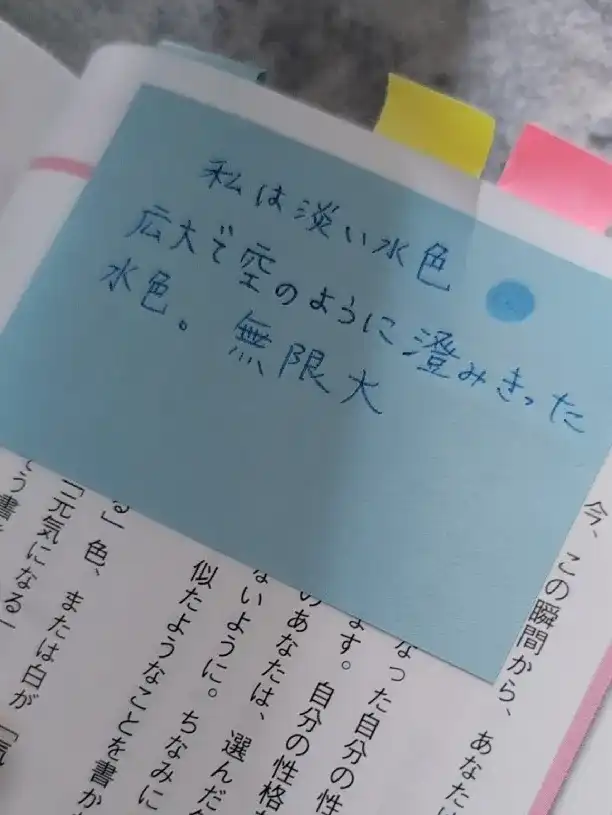 私は淡い水色
広大で空のように澄みきった
水色。無限大
今、この瞬間から、あなたは
なった自分の性
ます。自分の性格
のあなたは、選んだ
ないように。ちなみに
似たようなことを書か
る」色、または白が
「元気になる」
う書